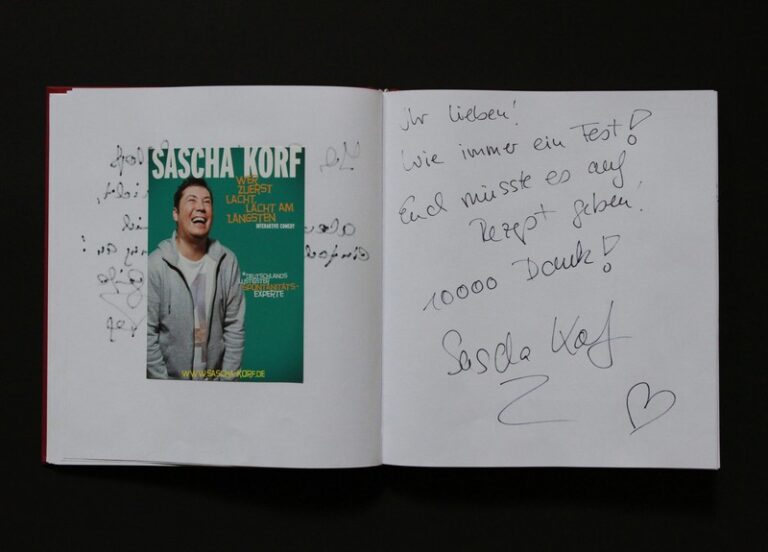 SASCHA KORF
WER
ZUERST
LACHT,
LACHT AM
LÄNGSTEN
INTERACTIVE COMEDY
DEUTSCHLANDS
LUSTIGSTER
SPONTANITÄTS-
EXPERTE
WWW.SASCHA-KORF.DE
Ihr Lieben!
Wie immer ein Fest!
Euch müsste es auf
Rezept geben!
10000 Dank!
Sascha Korf